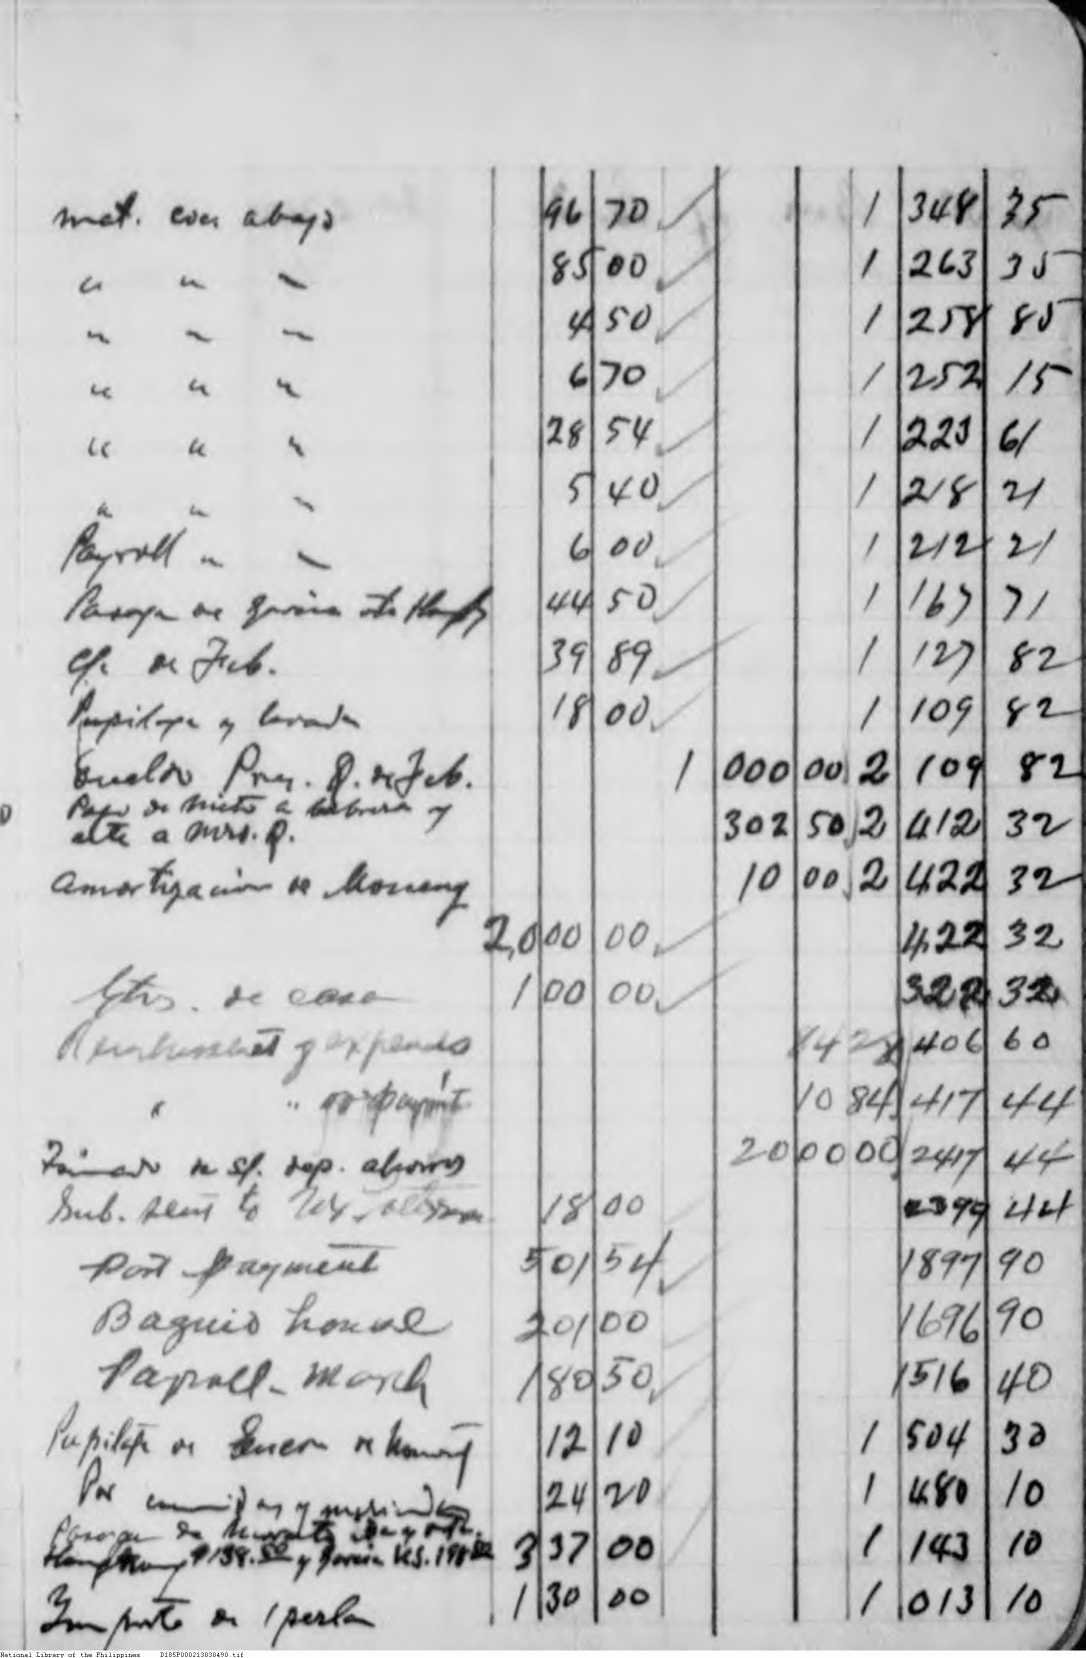 mat. 96 70 1 348 35
" " " 85 00 1 263 35
" " " 4 50 1 258 85
" " " 6 70 1 252 15
" " " 28 54 1 223 61
" " " 5 40 1 218 21
Payroll " " 6 00 1 212 21
de García 44 50 1 167 71
de Feb. 39 89 1 127 82
Pupilaje y lavado 18 00 1 109 82
Sueldo Pres. Q. de Feb. 1 000 00 2 109 82
Pago de Nieto a Cabrera y
a Mrs. Q. 302 50 2 412 32
Amortizacion de 10 00 2 422 32
2,000 00 422 32
Gtos. de casa 100 00 322 32
y expenses 84 28 406 60
" " paym't 10 84 417 44
de dep. ahorros 2000 00 2417 44
Sub. sent to 18 00 2399 44
Part Payment 501 54 1897 90
Baguio house 201 00 1696 90
Payroll - March 180 50 1516 40
Pupilaje de 12 10 1 504 30
Por comidas y 24 20 1 480 10
Pasaje de
Hongkong y García 337 00 1 143 10
Importe de 1 perla 130 00 1 013 10
National Library of the Philippines D185P000213030490.tif